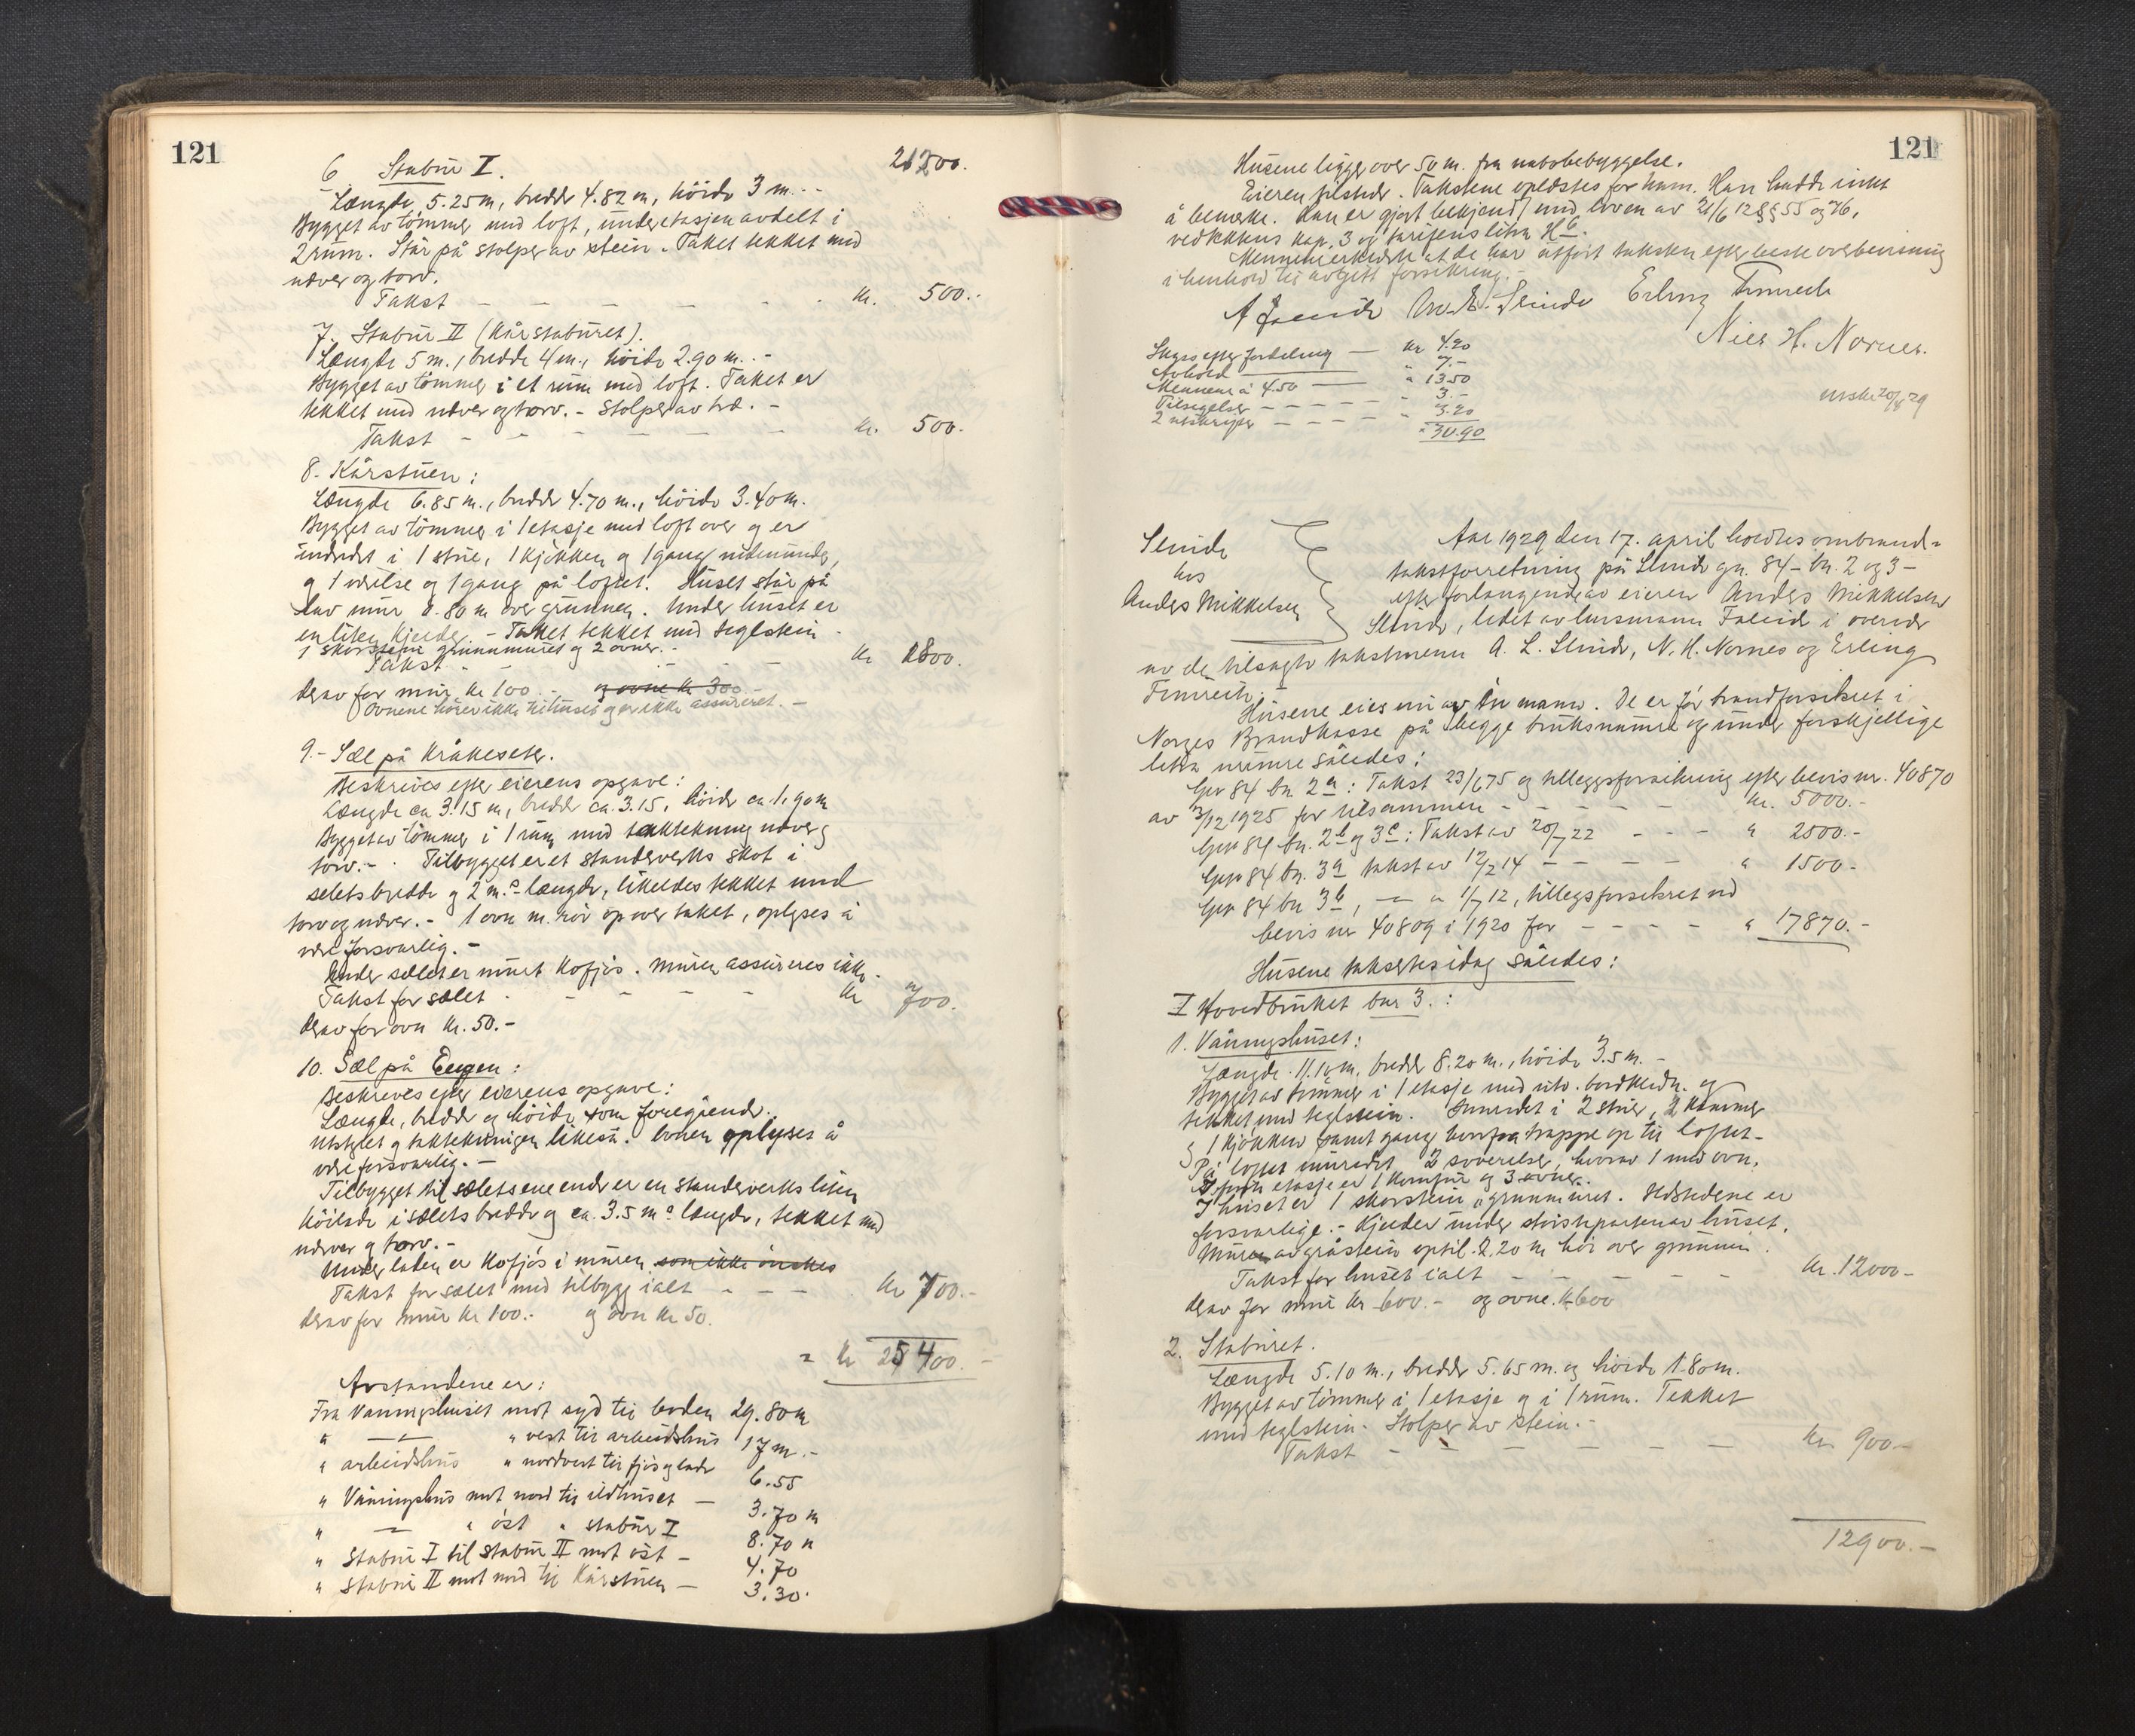 121
6 Stabur I. 21200.
Længde 5.25 m, bredde 4.82 m, höide 3 m. -
Bygget av tömmer med loft, underetasjen avdelt i
2 rum. Står på stolper av stein. Taket tekket med
næver og torv.
Takst - - - - - - kr. 500.-
7. Stabur II (Kårstaburet).
Længde 5 m., bredde 4 m., höide 2.90 m. -
Bygget av tömmer i et rum med loft. Taket er
tekket med næver og torv. - Stolper av træ. -
Takst - - - - - - kr. 500.
8. Kårstuen:
Længde 6.85 m., bredde 4.70 m., höide 3.40 m.
Bygget av tömmer i 1 etasje med loft over og er
indredet i 1 stue, 1 kjökken og 1 gang nedenunder,
og 1 værelse og 1 gang på loftet. Huset står på
lav mur 0.80 m over grunnen. Under huset er
en liten kjelder. - Taket tekket med teglstein
1 skorstein grunnmuret og 2 ovner. -
Takst - - - - kr 1800.
derav for mur kr 100.- og ovne kr 300
Ovnene hörer ikke til huset og er ikke assureret. -
9. - Sæl på Kråkeseter.
Beskrives efter eierens opgave:
Længde ca 3.15 m, bredde ca. 3.15, höide ca. 1.90 m
Bygget av tömmer i 1 rum med taktekning næver og
torv. - Tilbygget er et standerverks skot i
selets bredde og 2 m.s længde, likeledes tekket med
torv og næver. - 1 ovn m. rör op over taket, oplyses å
være forsvarlig. -
Under sælet er muret kofjös. Muren assureres ikke.
Takst for sælet - - - - kr 700.
derav for ovn kr. 50.-
10. Sæl på Eegen:
Beskreves efter eierens opgave:
Længde, bredde og höide som foregående.
Utstyret og taktekningen likeså. Ovnen oplyses å
være forsvarlig. -
Tilbygget til sælets ene ende er en standerverks liten
höilade i sælets bredde og ca. 3.5 m.s længde, tekket med
næver og torv. -
Under laden er kofjös i muren som ikke önskes
Takst for sælet med tilbygg ialt - - - kr 700.-
derav for mur kr 100.- og ovn kr 50.
= kr 25400.-
Avstandene er:
Fra Vaaningshuset mot syd til boden 29.80 m
" —"— " vest til arbeidshus 17 m.-
" arbeidshus " nordvest til fjös og lade 6.55
" Våningshus mot nord til ildhuset — 3.70 m
" —"— " öst " stabur I 8.70 m
" Stabur I til stabur II mot öst - 4.70
" Stabur II mot nord til Kårstuen - 3.30.
121
Husene ligger over 50 m. fra nabobebyggelse.
Eieren tilstede. Takstene oplæstes for ham. Han hadde intet
å bemerke. Han er gjort bekjendt med loven av 21/6 12 §§ 55 og 76,
vedtektens kap. 3 og tarifens litra H b.
Mennene erklærte at de har utfört taksten efter beste overbevisning
i henhold til avgitt forsikring. -
A Faleide A. L. Slinde Erling Fimreite
Niels H. Nornes.
Skyss efter fordeling — kr 4.20
Avhold — " 7.-
Mennene à 4.50 — " 13.50
Tilsigelser - - - - " 3.-
2 utskrifter - - - - " 3.20
" 30.90
utskr 20/4 29
Slinde
hos
Anders Mikkelsen
Aar 1929 den 17. april holdtes ombrand-
takstforretning på Slinde gn. 84 - bn. 2 og 3 -
efter forlangende av eieren Anders Mikkelsen
Slinde, ledet av lensmann Faleide i overvær
av de tilsagte takstmenn A. L. Slinde, N. H. Nornes og Erling
Fimreite. -
Husene eies nu av en mann. De er för brandforsikret i
Norges Brandkasse på begge bruksnumre og under forskjellige
litra numre således:
Gnr 84 bn 2 a: Takst 23/6 75 og tilleggsforsikring efter bevis nr. 40870
av 3/12 1925 for tilsammen - - - - - kr. 5000.-
Gnr 84 bn. 2 b og 3 c: Takst av 20/7 22 - - - " 2500.-
Gnr 84 bn. 3 a takst av 17/2 14 - - - - " 1500.-
Gnr 84 bn 3 b, — " 1/7 12, tillegsforsikret ved
bevis nr 40809 i 1920 for - - - - " 17870.-
Husene takseres idag således:
I Hovedbruket bnr 3.:
1. Våningshuset:
Længde 11.10 m, bredde 8.20 m., höide 3.5 m. -
Bygget av tömmer i 1 etasje med utv. bordklædn. og
tekket med teglstein. Innredet i 2 stuer, 2 kammer
og 1 kjökken samt gang hvorfra trappe op til loftet.
På loftet innredet 2 soverelser, hvorav 1 med ovn.
I förste etasje er 1 komfur og 3 ovner.
I huset er 1 skorstein, grunnmuret. Ildstedene er
forsvarlige. - Kjelder under störsteparten av huset.
Muren av gråstein optil 2.20 m höi over grunnen.
Takst for huset ialt - - - - - kr. 12000-
derav for mur kr 600.- og ovne kr 600
2. Staburet.
Længde 5.10 m., bredde 5.65 m. og höide 1.80 m.
Bygget av tömmer i 1 etasje og i 1 rum. Tekket
med teglstein. Stolper av stein. -
Takst - - - - - - kr 900-
12900.-